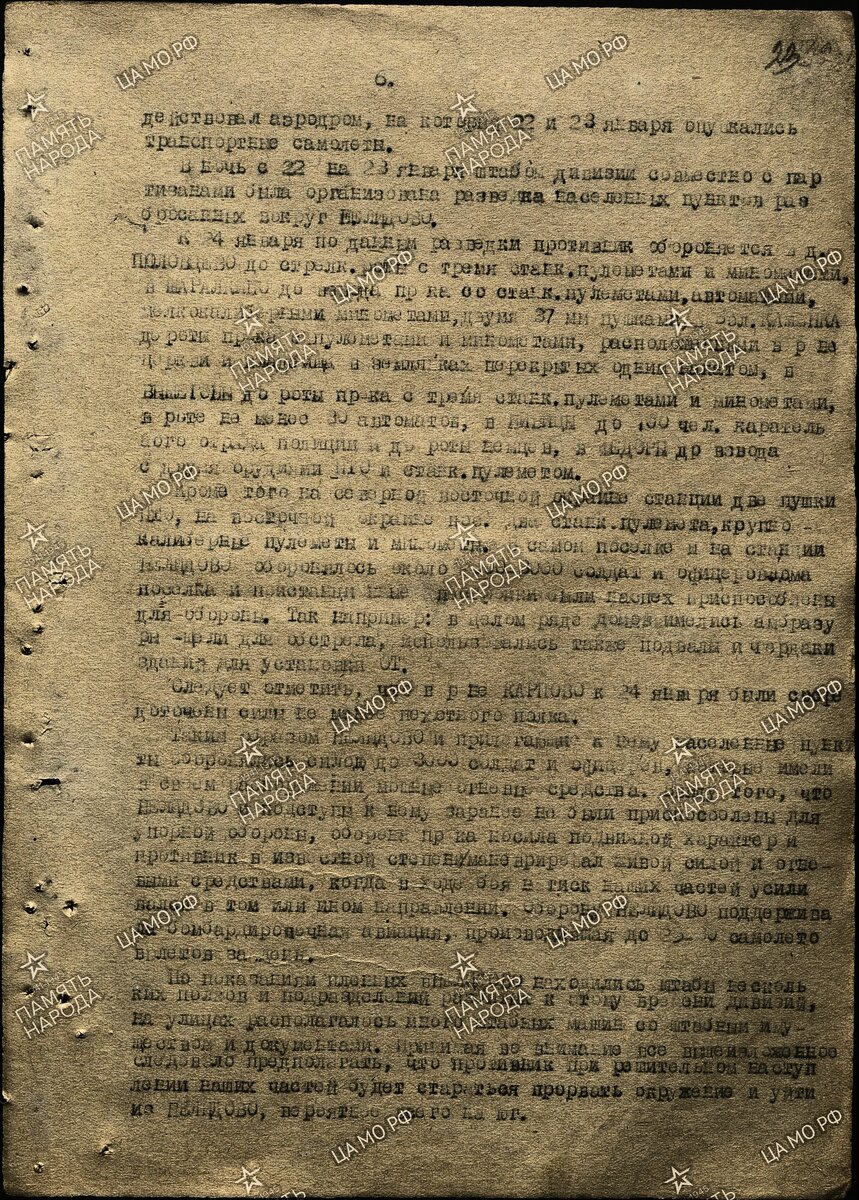 23
6.
действовал аэродром, на который 22 и 23 января опускались
транспортные самолеты.
В ночь с 22 на 23 января штабом дивизии совместно с пар
тизанами была организована разведка населенных пунктов раз
бросанных вокруг НЕЛИДОВО.
К 24 января по данным разведки противник обороняется в д.
ПОЛОВЦОВО до стрелк. роты с тремя станк.пулеметами и минометами,
в до взвода пр-ка со станк.пулеметами,автоматами,
мелкокалиберными минометами,двумя 37 мм пушками, в КАМЕНКА
до роты пр-ка с пулеметами и минометами, расположенными в р-не
церкви и в землянках перекрытых одним накатом, в
до роты пр-ка с тремя станк.пулеметами и минометами,
в роте не менее 30 автоматов, в до 100 чел. каратель
ного отряда полиции и до роты немцев, в до взвода
с двумя орудиями ПТО и станк.пулеметом.
Кроме того на северной восточной окраине станции две пушки
ПТО, на восточной окраине пос. два станк.пулемета,крупно -
калиберные пулеметы и минометы. В самом поселке и на станции
НЕЛИДОВО оборонялось около солдат и офицеров.Дома
поселка и постройки были наспех приспособлены
для обороны. Так например: в целом ряде домов имелись амбразу
ры -щели для обстрела, использовались также подвалы и чердаки
зданий для установки ОТ.
Следует отметить, что в р-не КАРПОВО к 24 января были сосре
доточены силы не менее пехотного полка.
Таким образом НЕЛИДОВО и прилегающие к нему населенные пунк
ты оборонялись силою до 3000 солдат и офицеров, которые имели
в своем распоряжении мощные огневые средства. того, что
НЕЛИДОВО и подступы к нему заранее не были приспособлены для
упорной обороны, оборона пр-ка носила подвижной характер и
противник в известной степени маневрировал живой силой и огне-
выми средствами, когда в ходе боя натиск наших частей усили
вался в том или ином направлении. Оборону НЕЛИДОВО поддержива
ла бомбардировочная авиация, производившая до самолето
вылетов за день.
По показаниям пленных в НЕЛИДОВО находились штабы несколь
ких полков и подразделений разбитых к этому времени дивизий,
на улицах располагалось много штабных машин со штабным иму-
ществом и документами. Принимая во внимание все вышеизложенное
следовало предполагать, что противник при решительном наступ
лении наших частей будет стараться прорвать окружение и уйти
из НЕЛИДОВО, вероятнее всего на юг.
ПАМЯТЬ НАРОДА
ЦА МО РФ